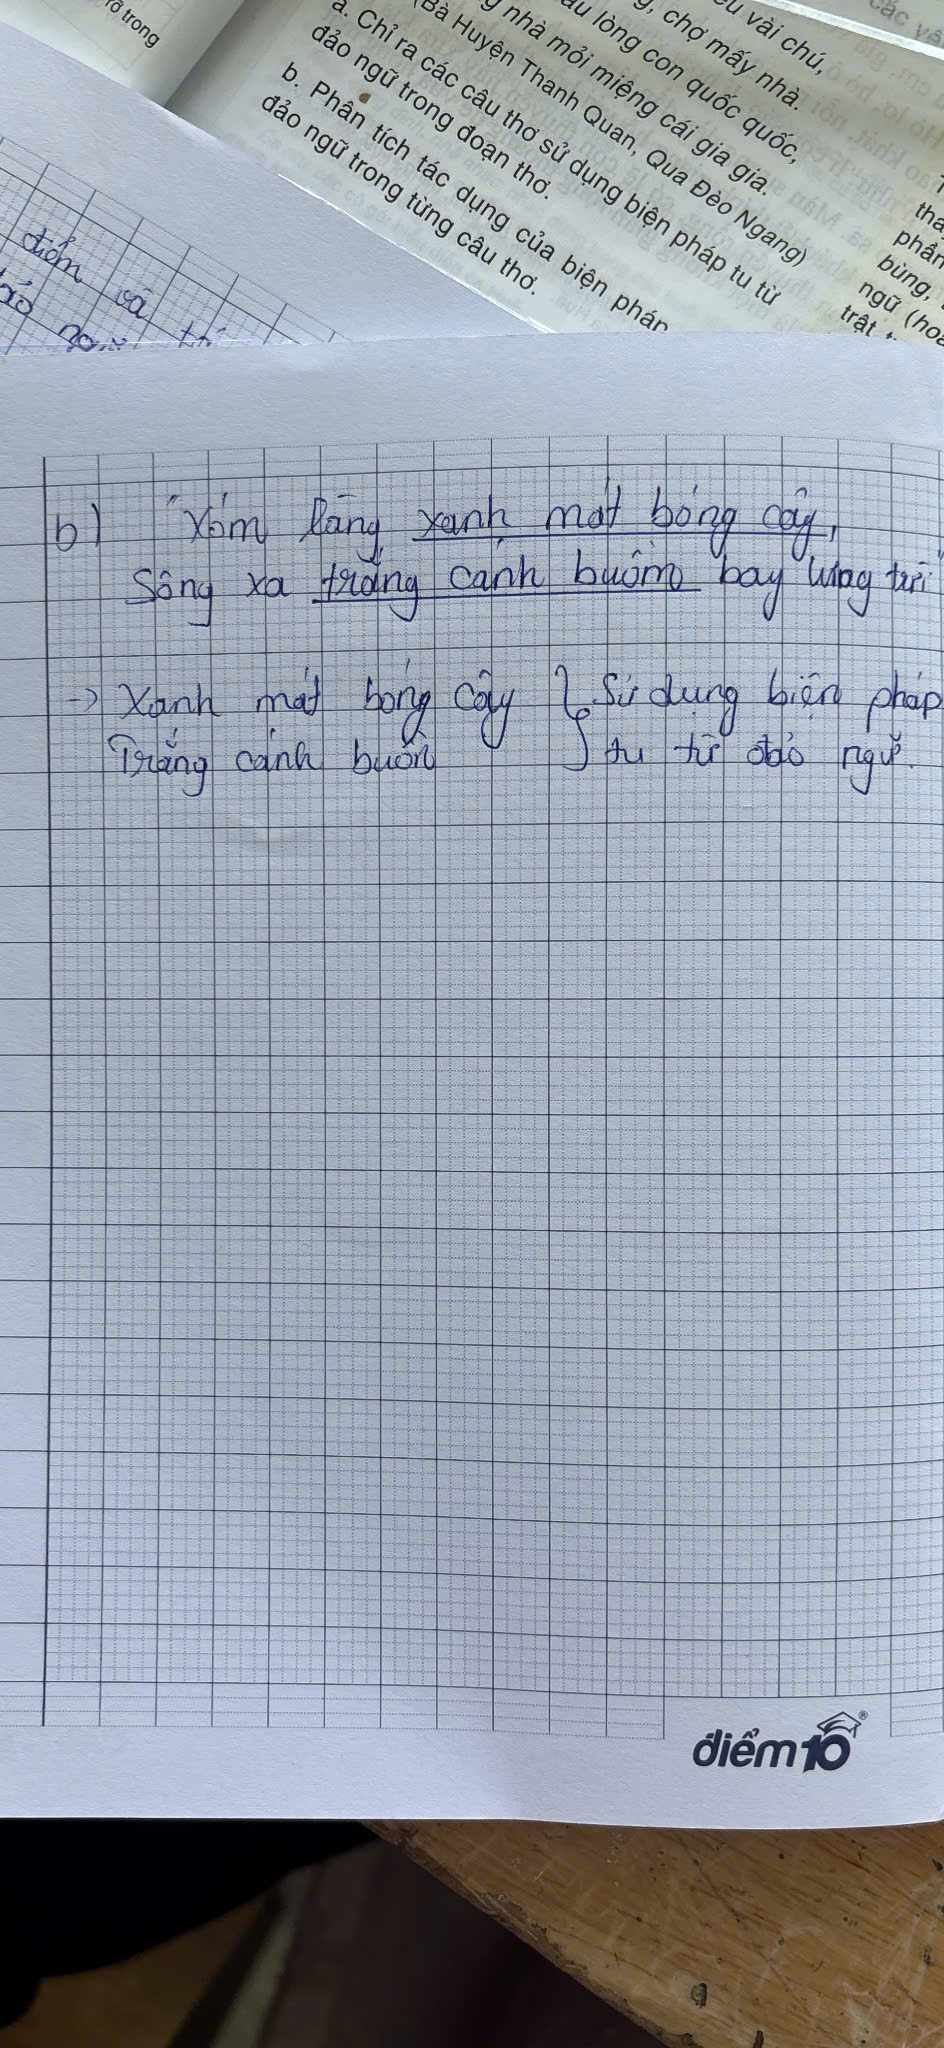 rõ trong
các
vài chú,
, chợ mấy nhà.
lòng con quốc quốc,
nhà mỏi miệng cái gia gia.
(Bà Huyện Thanh Quan, Qua Đèo Ngang)
a. Chỉ ra các câu thơ sử dụng biện pháp tu từ
đảo ngữ trong đoạn thơ.
b. Phân tích tác dụng của biện pháp
đảo ngữ trong từng câu thơ.
phần
bùng,
ngữ (hoặ
trật
điểm và
b) "Xóm làng xanh mát bóng cây,
Sông xa trắng cánh buồm bay lưng trời"
-> Xanh mát bóng cây } Sử dụng biện pháp
Trắng cánh buồn } tu từ đảo ngữ.
điểm10